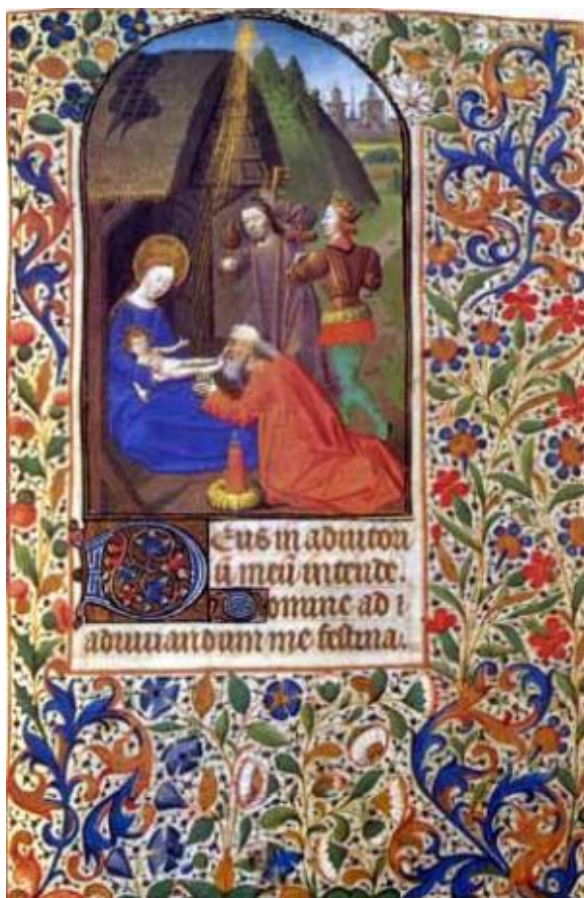 Deus in adiutori
ū meū intende.
Domine ad
adiuuandum me festina.